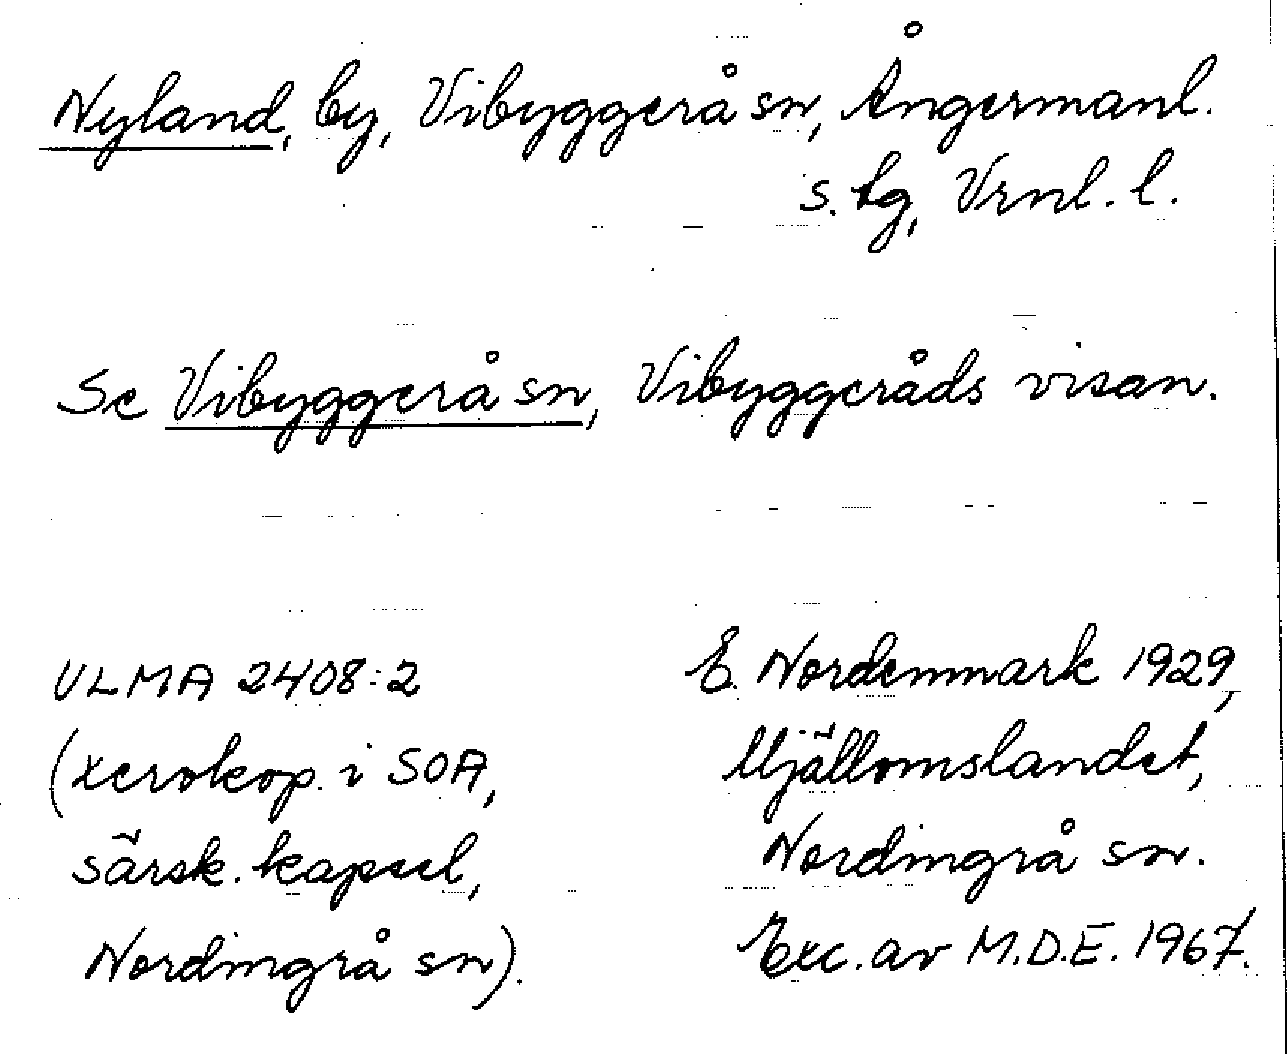 Nyland, by, Vibyggerå sn, Ångermanl.
s. tg, Vrnl. l.
Se Vibyggerå sn, Vibyggeråds visan.
ULMA 2408:2
(xerokop. i SOA,
särsk. kapsel,
Nordingrå sn).
E. Nordenmark 1929,
Mjällomslandet,
Nordingrå sn.
Exc. av M.D.E. 1967.